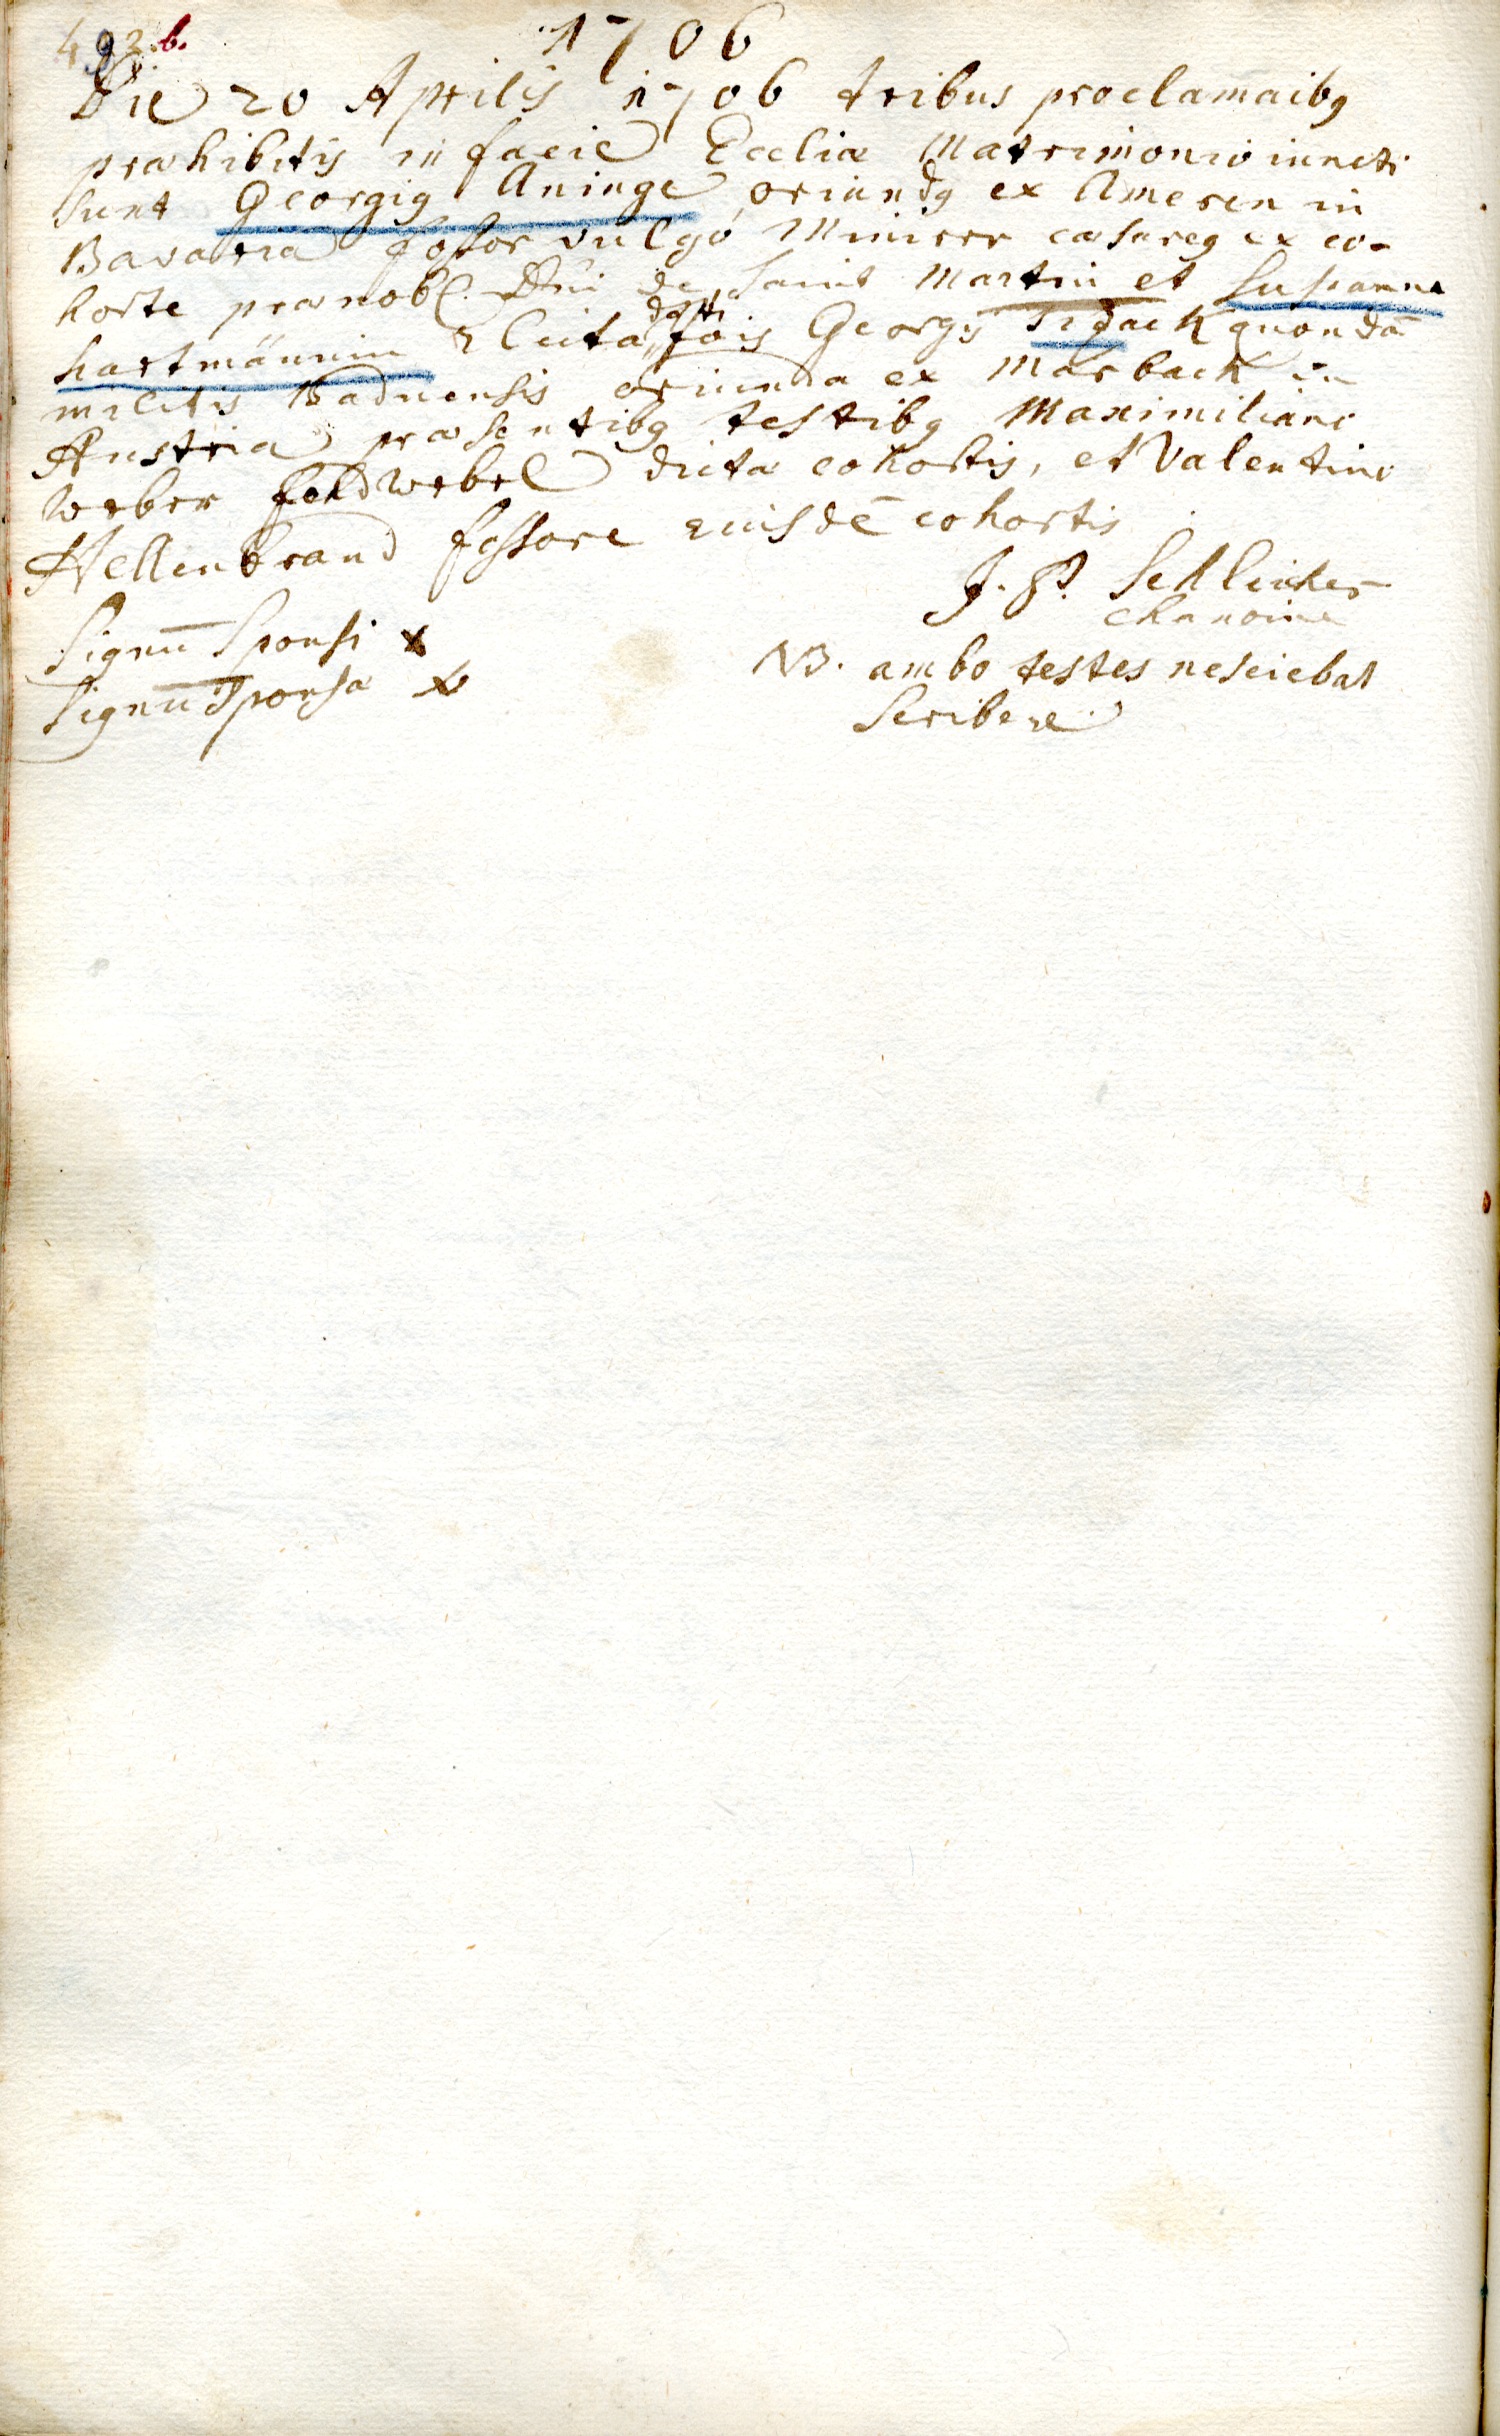 492.b.
1706
Die 20 Aprilis 1706 tribus proclamaībq
præhibitis in facie Eccliæ Matrimonio iuncti
sunt Georgiq Aninge, oriundq ex Ameren in
Bavaria fossor vulgo Minirer cæsareq ex co-
horte prænobl. Dñi de Saint Martin et Susanna
hartmännin relicta dfcti Georgij quondā
militis Badnensis oriunda ex Marback in
Austria præsentibq testibq Maximiliano
Weber feldwebel dictæ cohortis, et Valentino
Hellenbrand fossore euisdē cohortis
J. P. Schleicher
chanoine
Signū Sponsi x
NB. ambo testes nesciebāt
Signū Sponsæ x
Scribere